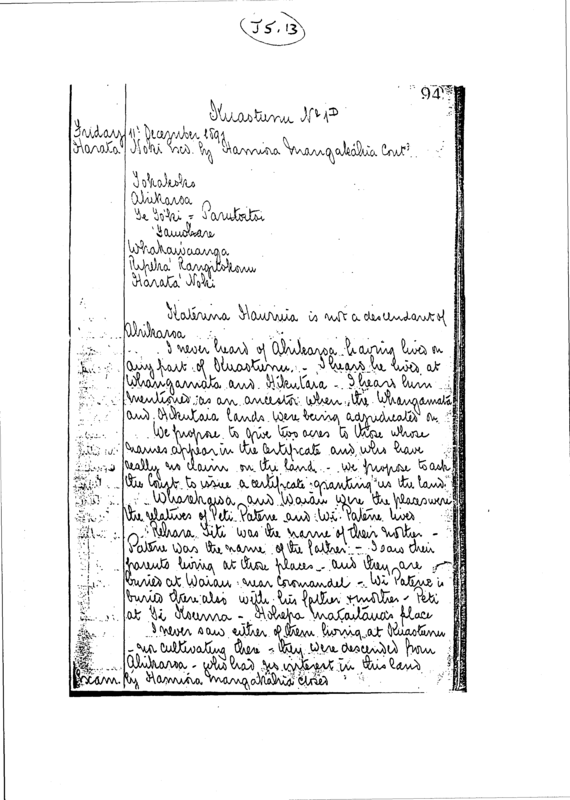 J5.13
94
Kuaotunu No 1D
Friday 11th December 1891
Harata Noki Exd. by Hamiora Mangakahia Contd
Tokakoko
Ahikaroa
Te Toki = Parutoitoi
Tamokare
Whakawaanga
Ripeka Rangitokonu
Harata Noki
Katerina Hauruia is not a descendant of
Ahikaroa
I never heard of Ahikaroa having lived on
any part of Kuaotunu. - I heard he lived at
Whangamata and Hikutaia - I heard him
mentioned as an ancestor when the Whangamata
and Hikutaia lands were being adjudicated on
We propose to give two acres to those whose
names appear in the certificate and who have
really no claim on the land - we propose to ask
the Court to issue a certificate granting us the land
Wharekawa and Waiau were the places were
the relatives of Peti Patene and Wi Patene lived
Rehara Titi was the name of their mother -
Patene was the name of the father - I saw their
parents living at those places - and they are
buried at Waiau near Coromandel - Wi Patene is
buried there also with his father & mother - Peti
at Te Kouma - Hohepa Mataitaua's place
I never saw either of them living at Kuaotunu
- nor cultivating there - they were descended from
Ahikaroa - who had no interest in this land
Exam. by Hamiora Mangakahia closed